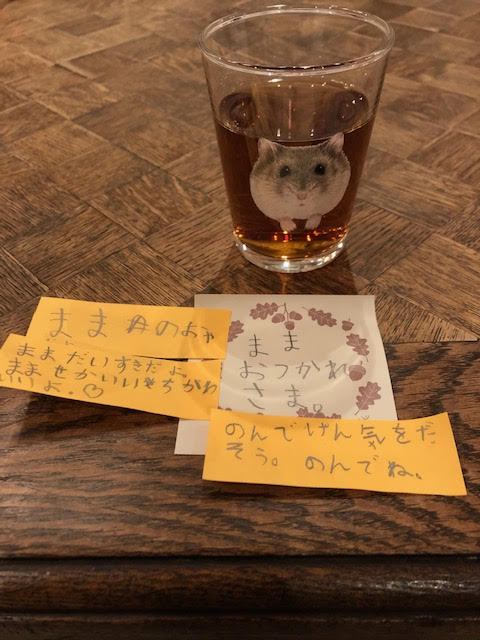 まま
まま だいすきだよ
まま せかいいちかわ
いいよ。♡
まま
おつかれ
さま。
のんでげん気をだ
そう。のんでね、